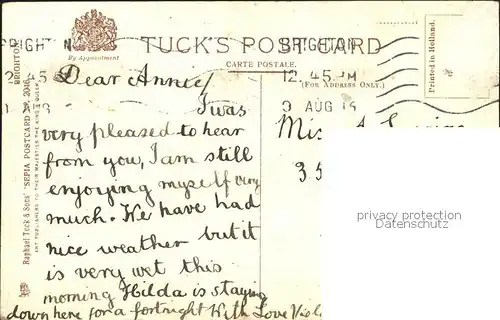 BRIGHTON
BRIGHTON
12.45 PM
9 AUG 15
By Appointment
TUCK'S POST CARD
CARTE POSTALE.
(FOR ADDRESS ONLY.)
Printed in Holland.
BRIGHTON
Raphael Tuck & Sons' "SEPIA" POSTCARD No. 2016
ART PUBLISHERS TO THEIR MAJESTIES THE KING & QUEEN.
Dear Annie/
I was
very pleased to hear
from you, I am still
enjoying myself very
much. We have had
nice weather but it
is very wet this
morning Hilda is staying
down here for a fortnight With Love
Mis
3.5
privacy protection
Datenschutz